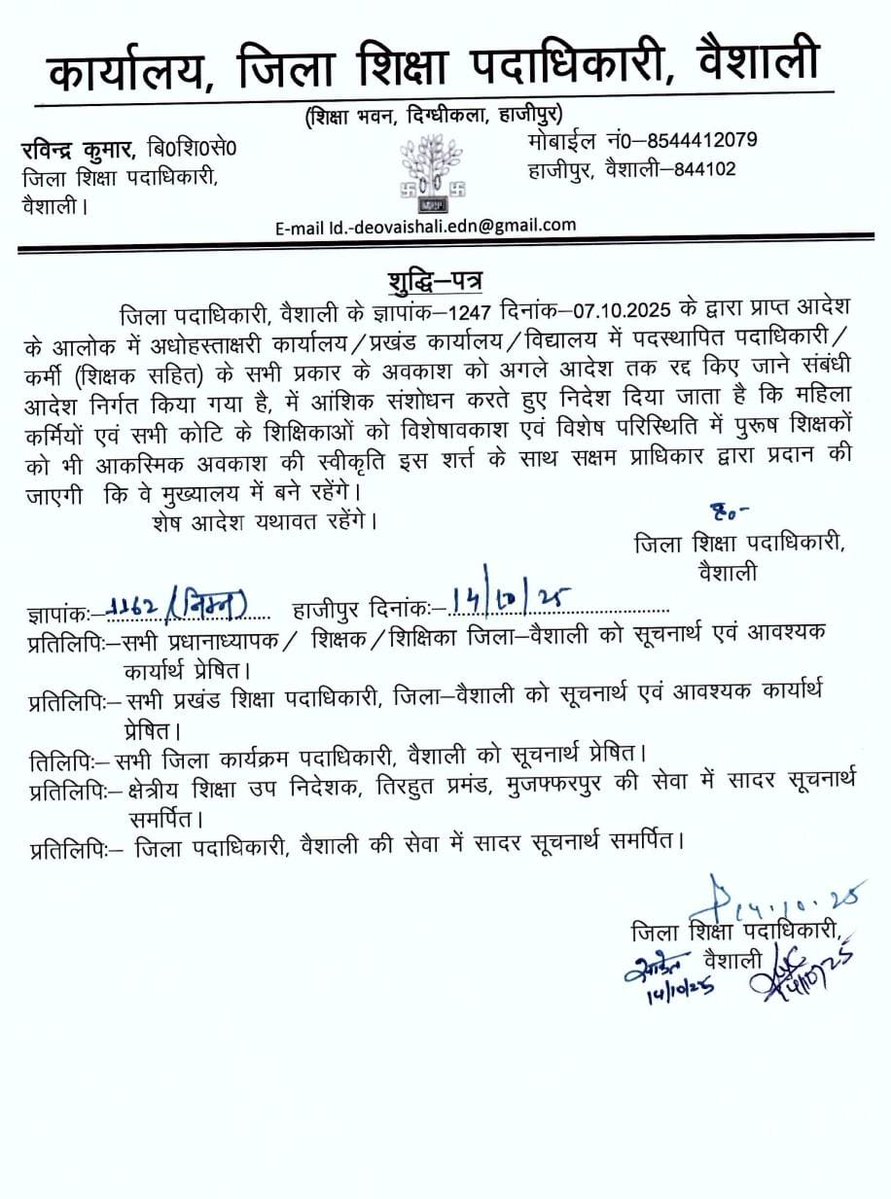 कार्यालय, जिला शिक्षा पदाधिकारी, वैशाली
(शिक्षा भवन, दिग्धीकला, हाजीपुर)
रविन्द्र कुमार, बि0शि0से0
जिला शिक्षा पदाधिकारी,
वैशाली।
मोबाईल नं0–8544412079
हाजीपुर, वैशाली–844102
E-mail Id.-deovaishali.edn@gmail.com
शुद्धि–पत्र
जिला पदाधिकारी, वैशाली के ज्ञापांक–1247 दिनांक–07.10.2025 के द्वारा प्राप्त आदेश
के आलोक में अधोहस्ताक्षरी कार्यालय/प्रखंड कार्यालय/विद्यालय में पदस्थापित पदाधिकारी/
कर्मी (शिक्षक सहित) के सभी प्रकार के अवकाश को अगले आदेश तक रद्द किए जाने संबंधी
आदेश निर्गत किया गया है, में आंशिक संशोधन करते हुए निदेश दिया जाता है कि महिला
कर्मियों एवं सभी कोटि के शिक्षिकाओं को विशेषावकाश एवं विशेष परिस्थिति में पुरूष शिक्षकों
को भी आकस्मिक अवकाश की स्वीकृति इस शर्त्त के साथ सक्षम प्राधिकार द्वारा प्रदान की
जाएगी कि वे मुख्यालय में बने रहेंगे।
शेष आदेश यथावत रहेंगे।
ह०-
जिला शिक्षा पदाधिकारी,
वैशाली
ज्ञापांकः–1162/(निम्न) हाजीपुर दिनांकः–14/10/25
प्रतिलिपिः–सभी प्रधानाध्यापक/ शिक्षक/शिक्षिका जिला–वैशाली को सूचनार्थ एवं आवश्यक
कार्यार्थ प्रेषित।
प्रतिलिपिः– सभी प्रखंड शिक्षा पदाधिकारी, जिला–वैशाली को सूचनार्थ एवं आवश्यक कार्यार्थ
प्रेषित।
तिलिपिः– सभी जिला कार्यक्रम पदाधिकारी, वैशाली को सूचनार्थ प्रेषित।
प्रतिलिपिः– क्षेत्रीय शिक्षा उप निदेशक, तिरहुत प्रमंड, मुजफ्फरपुर की सेवा में सादर सूचनार्थ
समर्पित।
प्रतिलिपिः– जिला पदाधिकारी, वैशाली की सेवा में सादर सूचनार्थ समर्पित।
14.10.25
जिला शिक्षा पदाधिकारी,
वैशाली
14/10/25
14/10/25